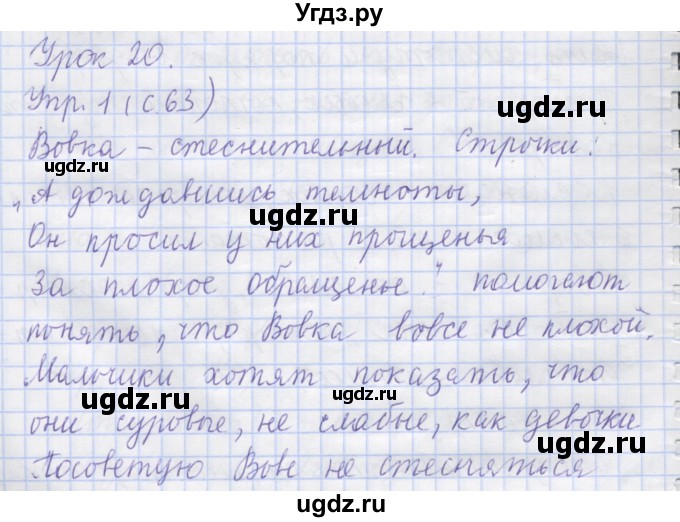 Угдз.ру
Урок 20.
Упр. 1 (с 63)
ugdz.ru ugdz.ru
Вовка – стеснительный. Строчки:
ugdz.ru
„А дождавшись темноты,
ugdz.ru
Он просил у них прощенья
За плохое обращенье." помогают
ugdz.ru
понять, что Вовка вовсе не плохой.
ugdz.ru
Мальчики хотят показать, что
ugdz.ru
они суровые, не слабые, как девочки
ugdz.ru
Посоветую Вове не стесняться
ugdz.ru
ugdz.ru